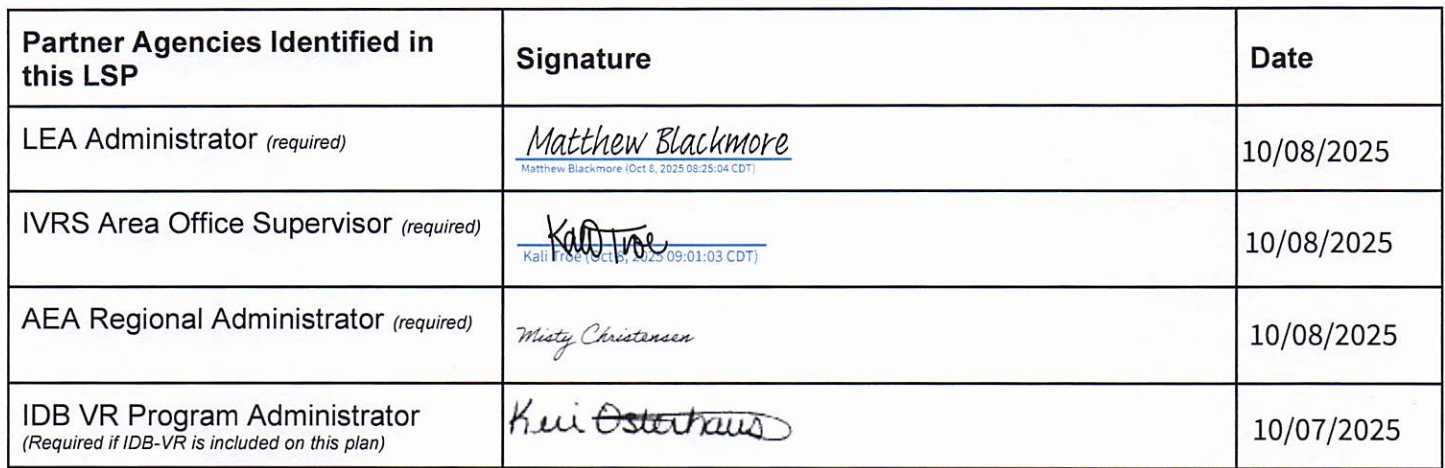 Partner Agencies Identified in
this LSP
Signature
Date
LEA Administrator (required)
Matthew Blackmore
Matthew Blackmore (Oct 8, 2025 08:25:04 CDT)
10/08/2025
IVRS Area Office Supervisor (required)
Kali Troe
Kali Troe (Oct 8, 2025 09:01:03 CDT)
10/08/2025
AEA Regional Administrator (required)
Misty Christensen
10/08/2025
IDB VR Program Administrator
(Required if IDB-VR is included on this plan)
Keri Osterhaus
10/07/2025